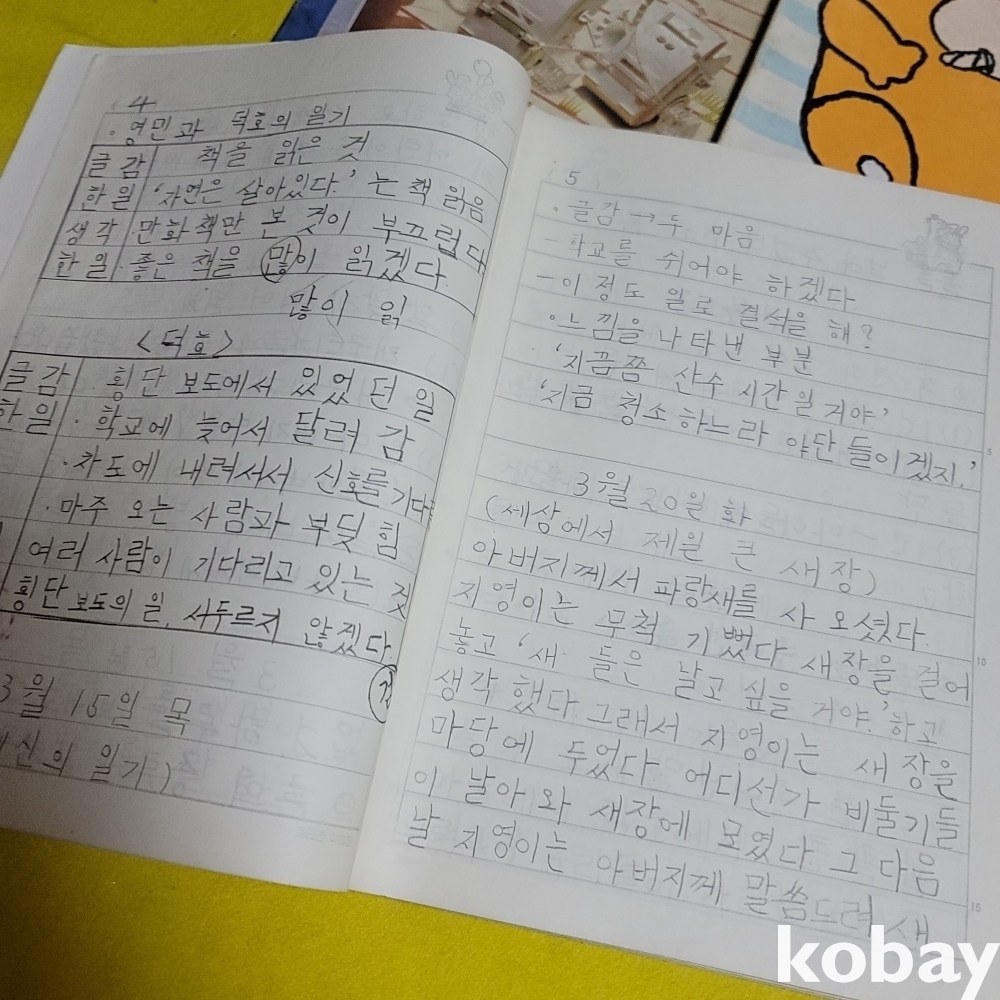 4
· 영민과 덕호의 일기
글감 책을 읽은 것
한일 '자연은 살아있다.' 는 책 읽음
생각 만화책만 본 것이 부끄럽다
한일 · 좋은 책을 많이 읽겠다.
많이 읽
<덕호>
글감 · 횡단 보도에서 있었던 일
한일 · 학교에 늦어서 달려 감
· 차도에 내려서서 신호를 기다
· 마주 오는 사람과 부딪힘
여러 사람이 기다리고 있는 것
횡단 보도의 일, 서두르지 않겠다.
3월 15일 목
신의 일기)
5
· 글감 → 두 마음
- 학교를 쉬어야 하겠다
- 이 정도 일로 결석을 해?
· 느낌을 나타낸 부분
'지끔쯤 산수 시간일 거야.'
'지금 청소하느라 야단 들이겠지.'
3월 20일 화
(세상에서 제일 큰 새장)
아버지께서 파랑새를 사 오셨다.
지영이는 무척 기뻤다 새장을 걸어
놓고 '새 들은 날고 싶을 거야.' 하고
생각했다. 그래서 지영이는 새장을
마당에 두었다 어디선가 비둘기들
이 날아 와 새장에 모였다. 그 다음
날 지영이는 아버지께 말씀드려 새
5
10
15
kobay